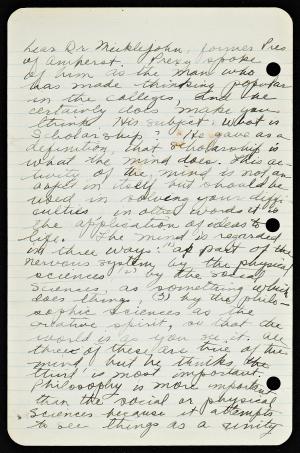 hear Dr Micklejohn, former Pres
of Amherst. Prexy spoke
of him as the man who
has made thinking popular
in the colleges, and he
certainly does make you
think. His subject: What is
Scholarship? He gave as a
definition, that scholarship is
what the mind does. This ac-
tivity of the mind is not an
aspect in itself but should be
used in solving your diffi-
culties, in other words it is
the application of ideas to
life. The mind is regarded
in three ways: as part of the
nervous system, by the physical
sciences; by the social
sciences, as something which
does things; (3) by the philo-
sophic sciences as the
creative spirit, or that the
world is as you see it. All
three of these are true of the
mind but he thinks the
third is most important.
Philosophy is more important
than the social or physical
sciences because it attempts
to see things as a unity